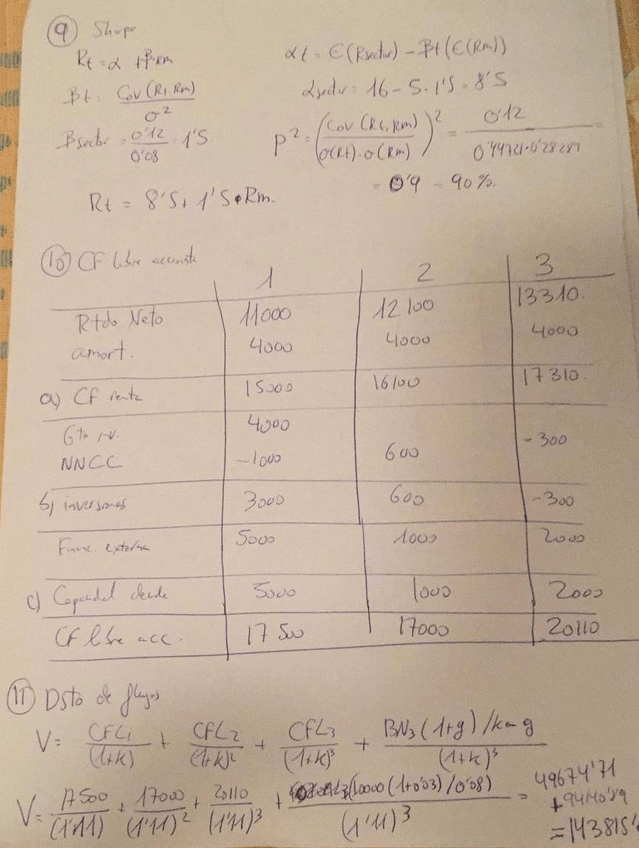 9 Sharpe
Rt = α + β·Rm
αt = E(Rsector) - βt(E(Rm))
βt = Cov(Rt, Rm) / σ²
αsector = 16 - 5·1'5 = 8'5
βsector = 0'12 / 0'08 = 1'5
P² = (Cov(Rt, Rm) / σ(Rt)·σ(Rm))² = 0'12 / 0'44721·0'28284 =
= 0'9 - 90%
Rt = 8'5 + 1'5·Rm.
10 CF libre accionista
1 2 3
Rtdo Neto 11000 12100 13310.
amort. 4000 4000 4000
a) CF renta 15000 16100 17310.
Gto inv. 4000
NNCC -1000 600 -300
b) inversiones 3000 600 -300
Financ. externa 5000 1000 2000
c) deuda 5000 1000 2000
CF libre acc. 17500 17000 20110
11 Dsto de flujos
V = CFL1 / (1+k) + CFL2 / (1+k)² + CFL3 / (1+k)³ + BN3(1+g)/k-g / (1+k)³
V = 17500 / (1'11) + 17000 / (1'11)² + 20110 / (1'11)³ + (10000(1+0'03)/0'08) / (1'11)³ = 49674'71
= 143815'